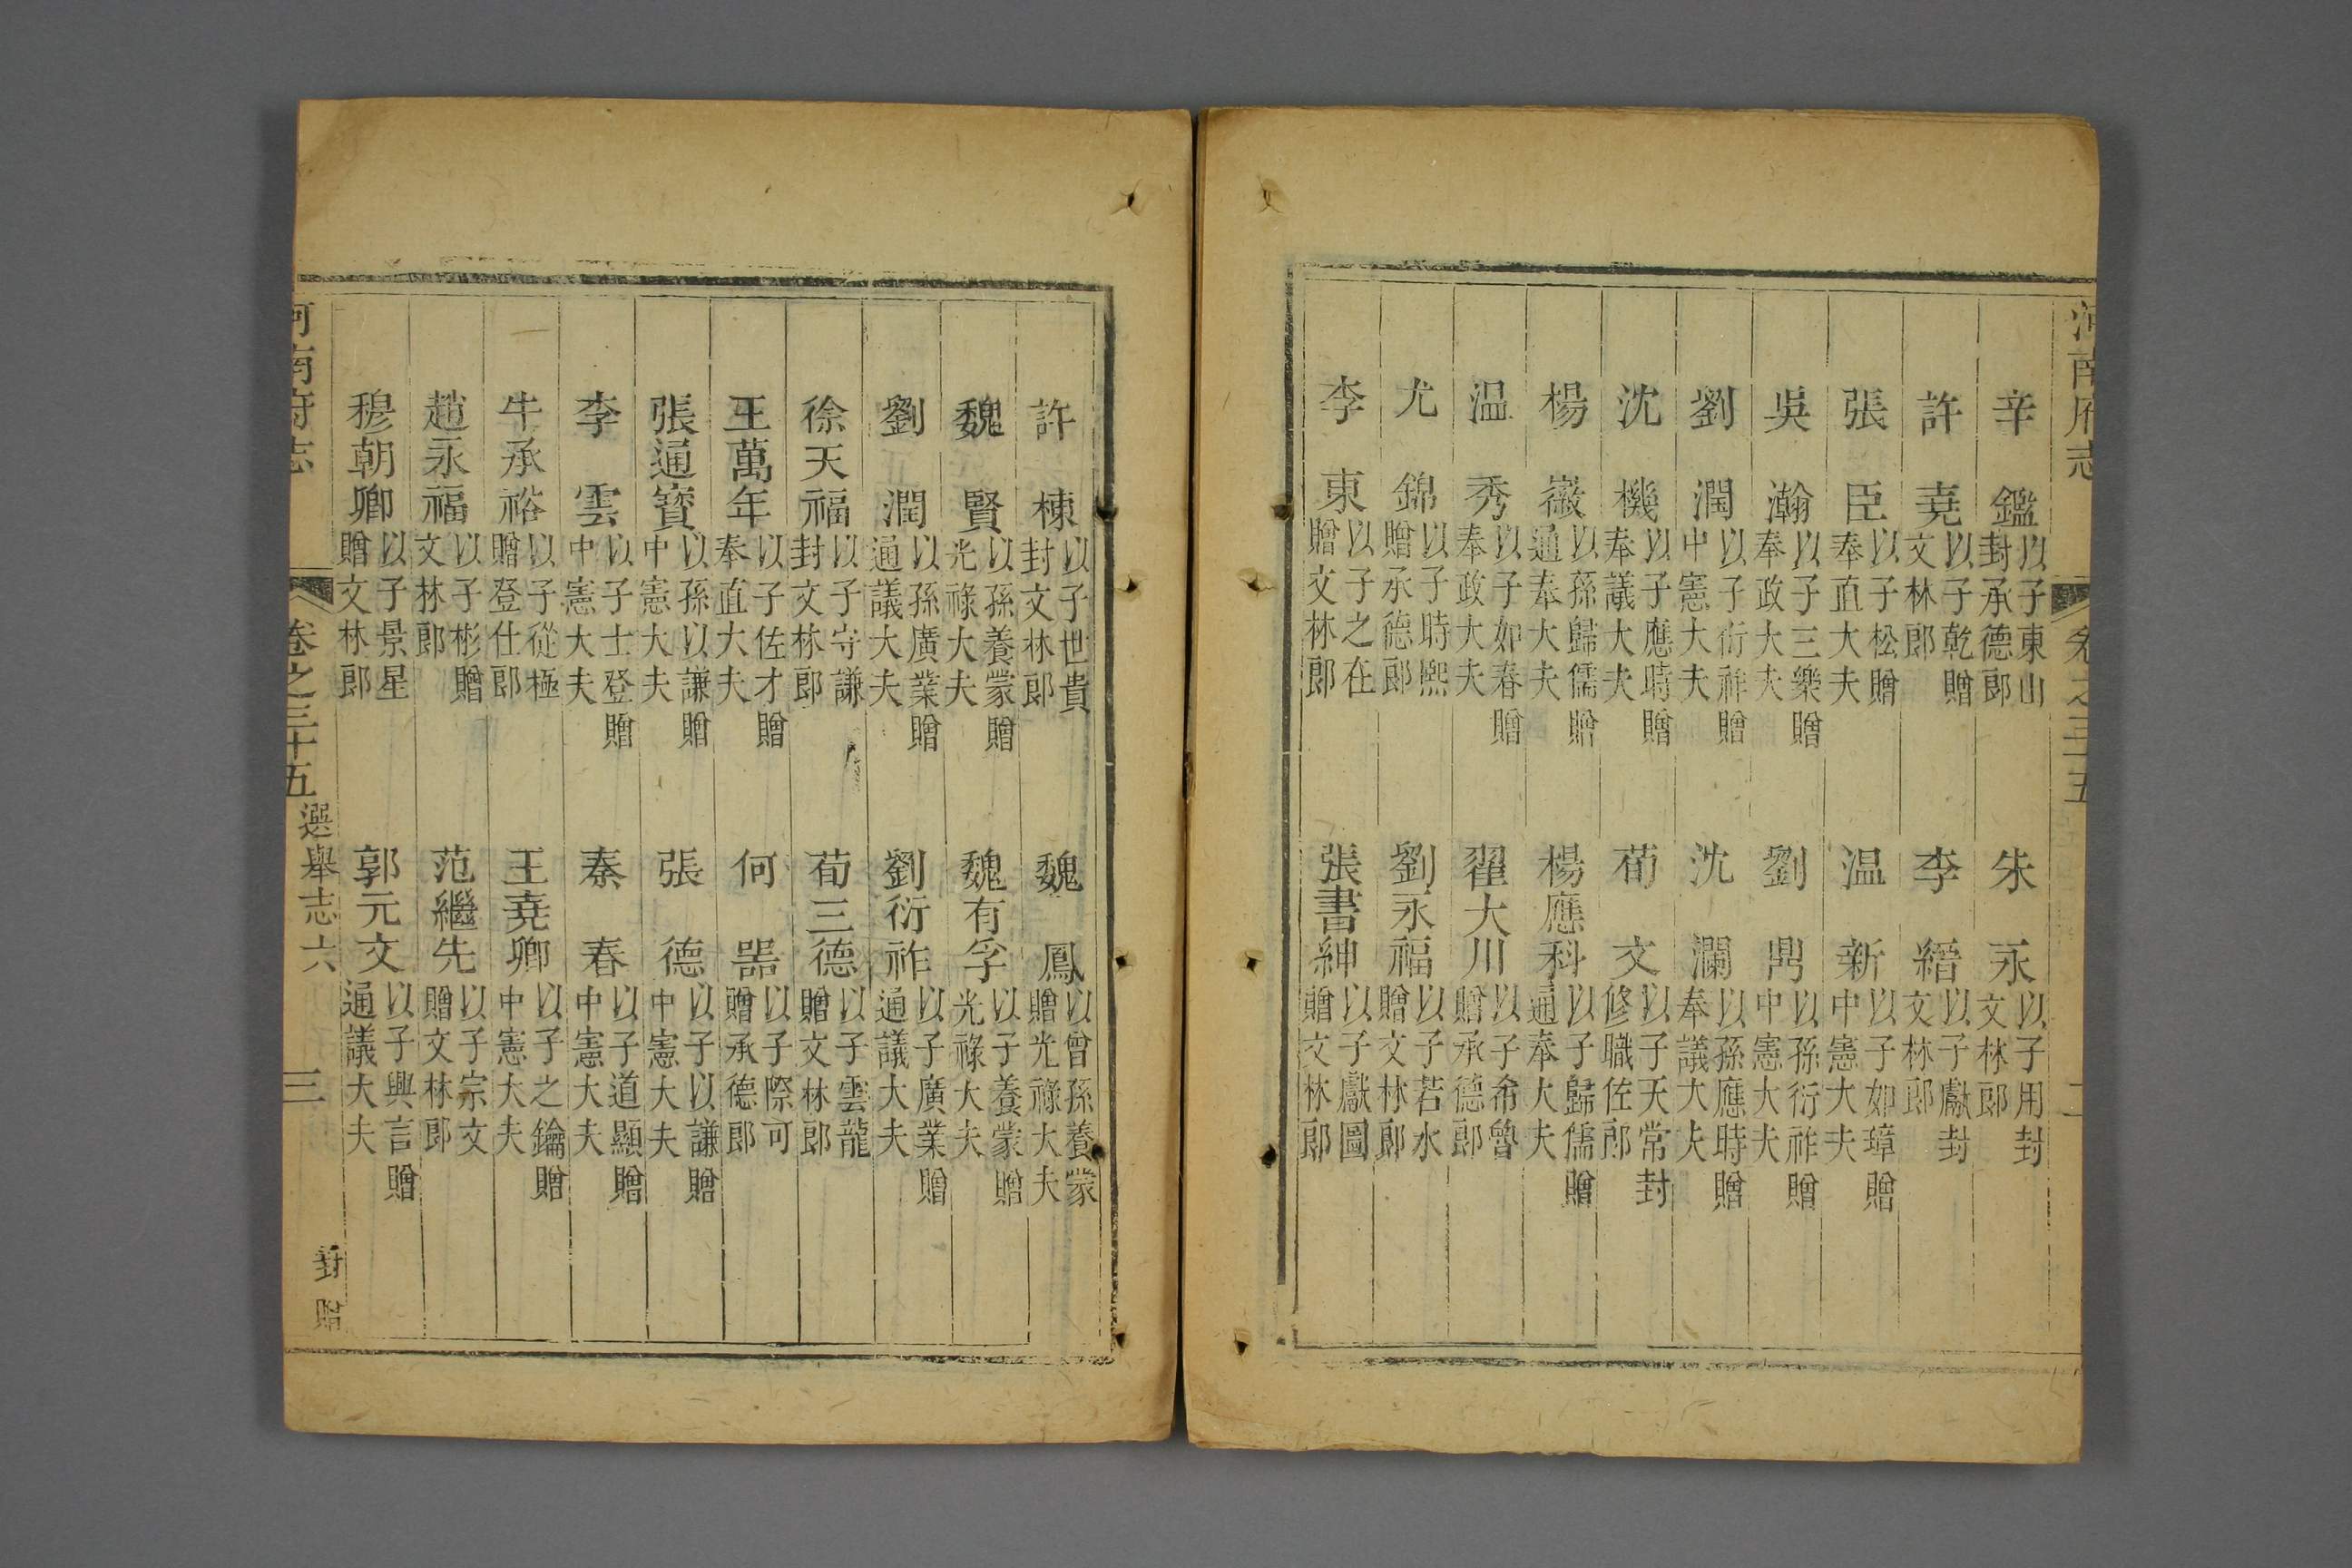 河南府志 卷之三十五 二
辛鑑 以子東山封承德郎 朱永 以子用封文林郎
許堯 以子乾贈文林郎 李縉 以子獻封文林郎
張臣 以子松贈奉直大夫 温新 以子如璋贈中憲大夫
吳瀚 以子三樂贈奉政大夫 劉鹍 以孫衍祚贈中憲大夫
劉潤 以子衍祚贈中憲大夫 沈瀾 以孫應時贈奉議大夫
沈機 以子應時贈奉議大夫 荀文 以子天常封修職佐郎
楊嶶 以孫歸儒贈通奉大夫 楊應科 以子歸儒贈通奉大夫
温秀 以子如春贈奉政大夫 翟大川 以子希魯贈承德郎
尤錦 以子時熙贈承德郎 劉永福 以子若水贈文林郎
李東 以子之在贈文林郎 張書紳 以子獻圖贈文林郎
許棟 以子世貴封文林郎 魏鳳 以曾孫養蒙贈光祿大夫
魏賢 以孫養蒙贈光祿大夫 魏有孚 以子養蒙贈光祿大夫
劉潤 以孫廣業贈通議大夫 劉衍祚 以子廣業贈通議大夫
徐天福 以子守謙封文林郎 荀三德 以子雲龍贈文林郎
王萬年 以子佐才贈奉直大夫 何噐 以子際可贈承德郎
張通寶 以孫以謙贈中憲大夫 張德 以子以謙贈中憲大夫
李雲 以子士登贈中憲大夫 秦春 以子道顯贈中憲大夫
牛承裕 以子從極贈登仕郎 王堯卿 以子之鑰贈中憲大夫
趙永福 以子彬贈文林郎 范繼先 以子宗文贈文林郎
穆朝卿 以子景星贈文林郎 郭元文 以子興言贈通議大夫
河南府志 卷之三十五 選舉志六 三 封贈